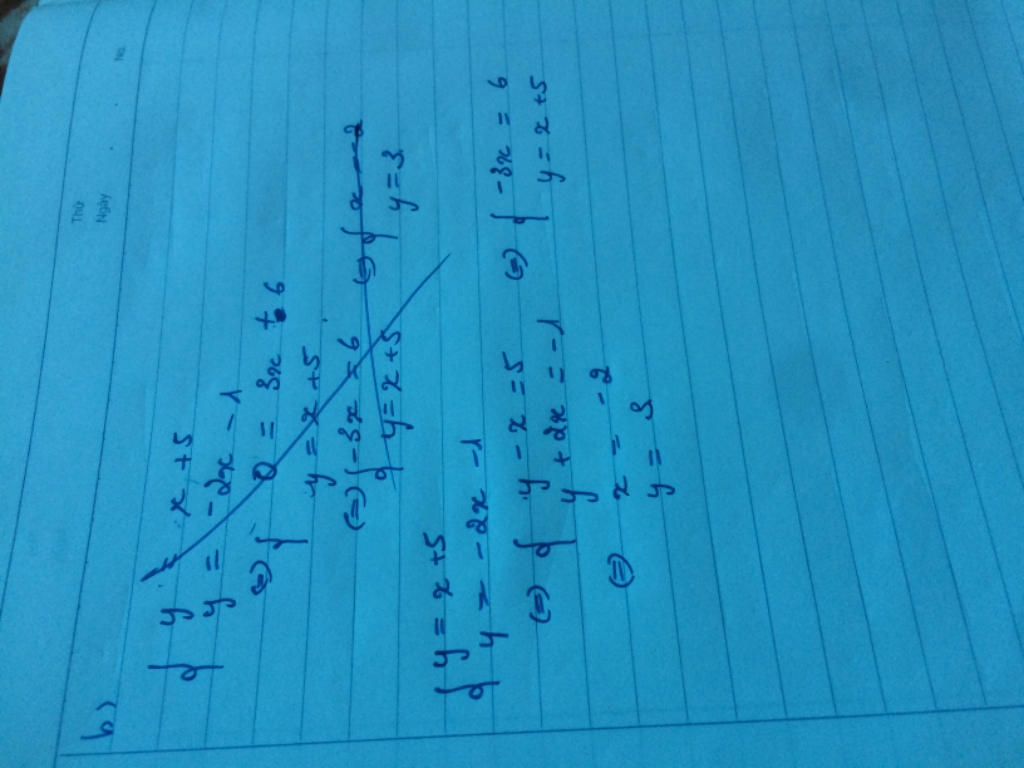 Thứ
Ngày
No.
b)
{ y = x + 5
y = -2x - 1
(=) { 0 = 3x + 6
y = x + 5
(=) { -3x = 6 (=) { x = -2
y = x + 5 y = 3
{ y = x + 5
y = -2x - 1
(=) { y - x = 5 (=) { -3x = 6
y + 2x = -1 y = x + 5
(=) x = -2
y = 3